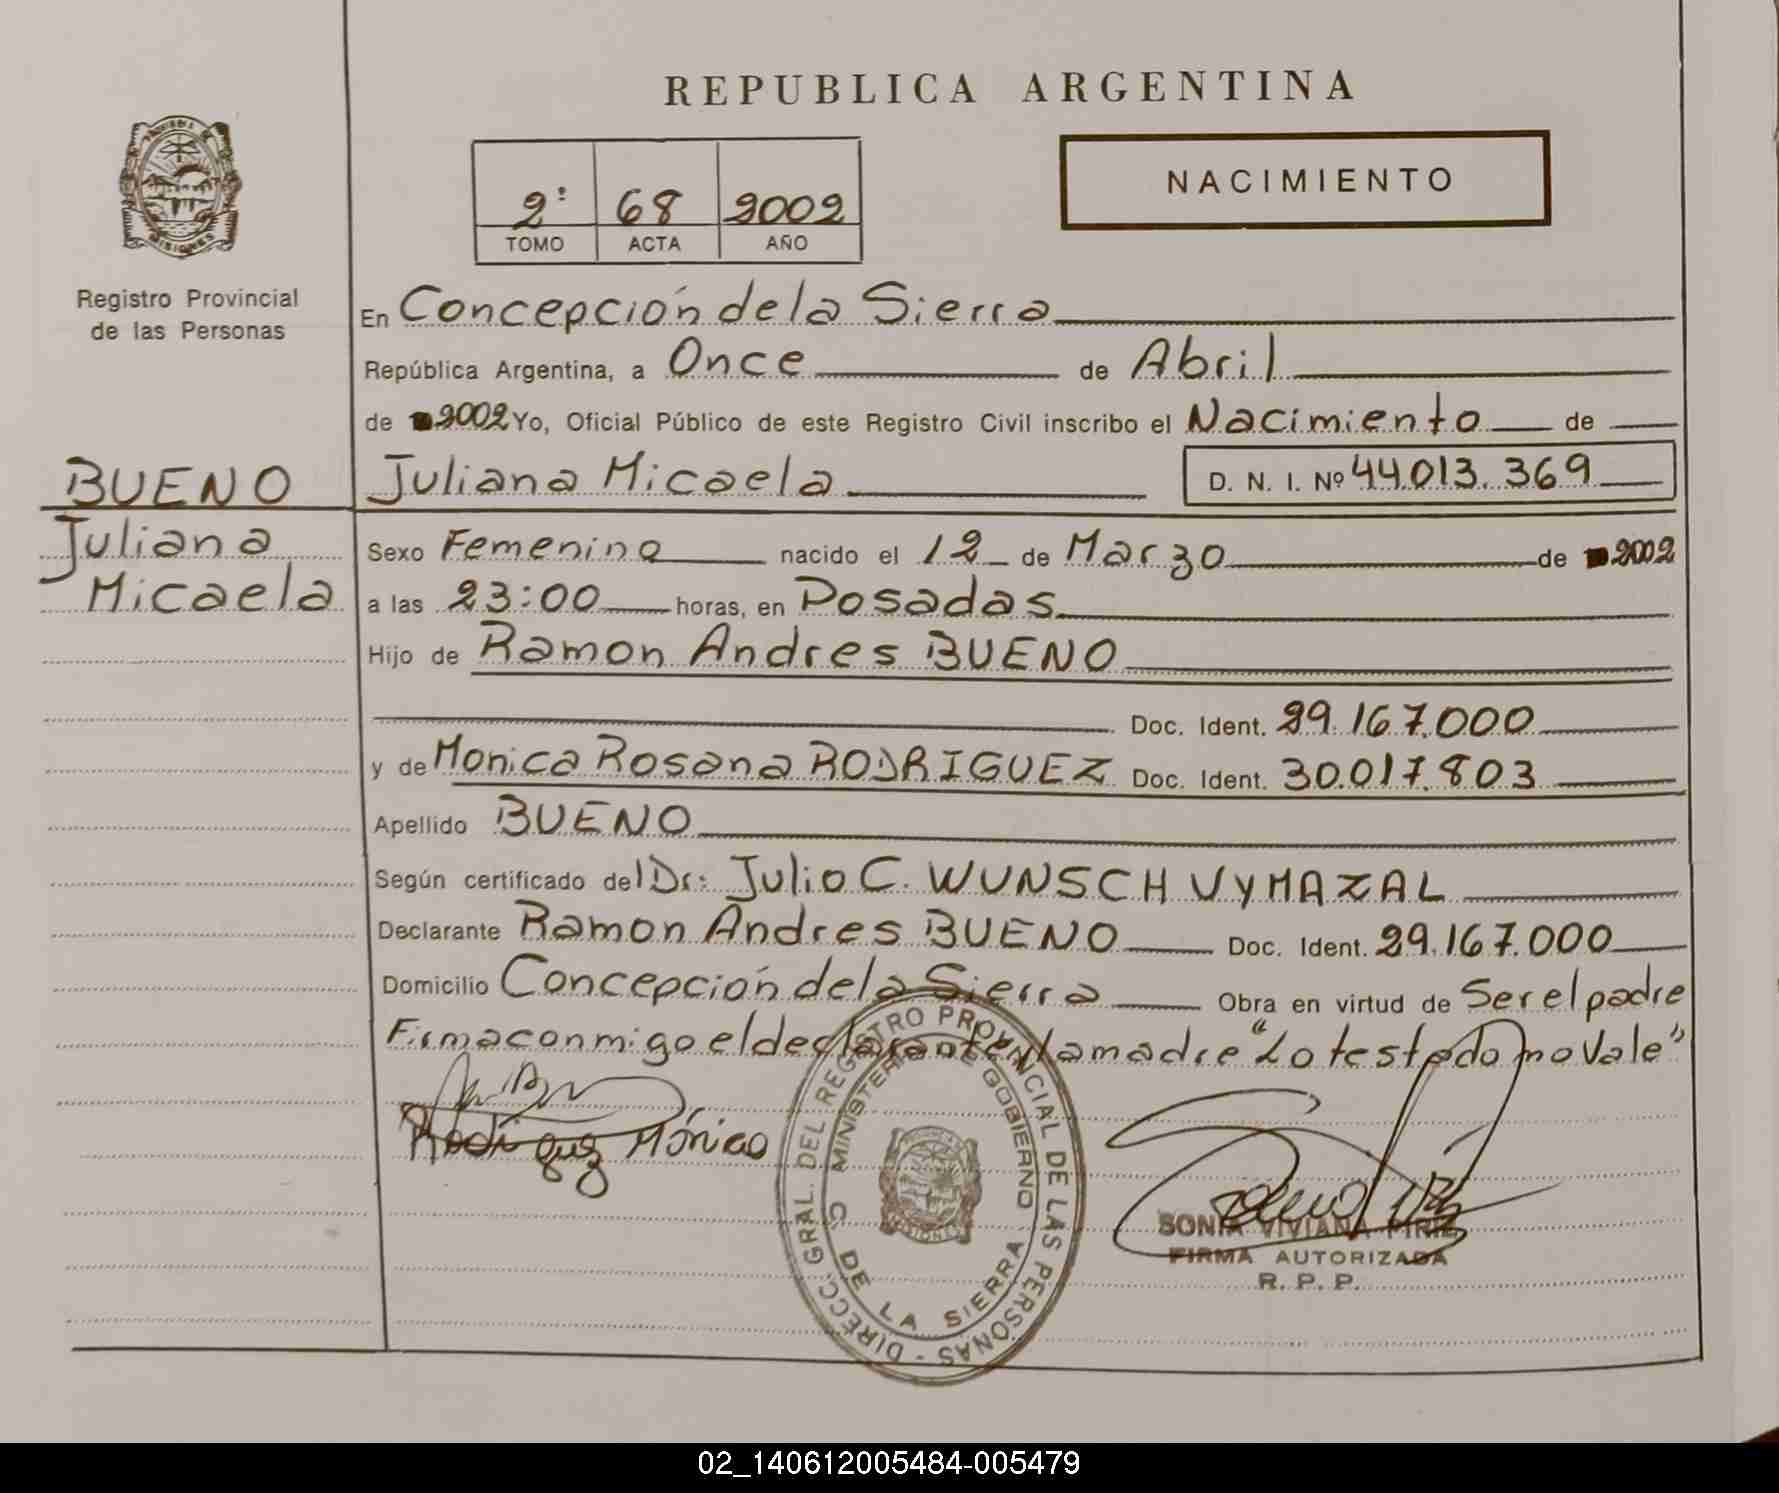 REPUBLICA ARGENTINA
NACIMIENTO
2º 68 2002
TOMO ACTA AÑO
MISIONES
Registro Provincial
de las Personas
En Concepción de la Sierra
República Argentina, a Once de Abril
de 2002 Yo, Oficial Público de este Registro Civil inscribo el Nacimiento de
BUENO
Juliana
Micaela
Juliana Micaela D. N. I. Nº 44.013.369
Sexo Femenino nacido el 12 de Marzo de 2002
a las 23:00 horas, en Posadas
Hijo de Ramon Andres BUENO
Doc. Ident. 29.167.000
y de Monica Rosana RODRIGUEZ Doc. Ident. 30.017.803
Apellido BUENO
Según certificado del Dr: Julio C. WUNSCH VYMAZAL
Declarante Ramon Andres BUENO Doc. Ident. 29.167.000
Domicilio Concepción de la Sierra Obra en virtud de Ser el padre
Firma conmigo el declarante y la madre "Lo testado no Vale"
Rodriguez Mónica
DIRECC. GRAL. DEL REGISTRO PROVINCIAL DE LAS PERSONAS -
MINISTERIO DE GOBIERNO
C. DE LA SIERRA
SONIA VIVIANA
FIRMA AUTORIZADA
R. P. P.
02_140612005484-005479